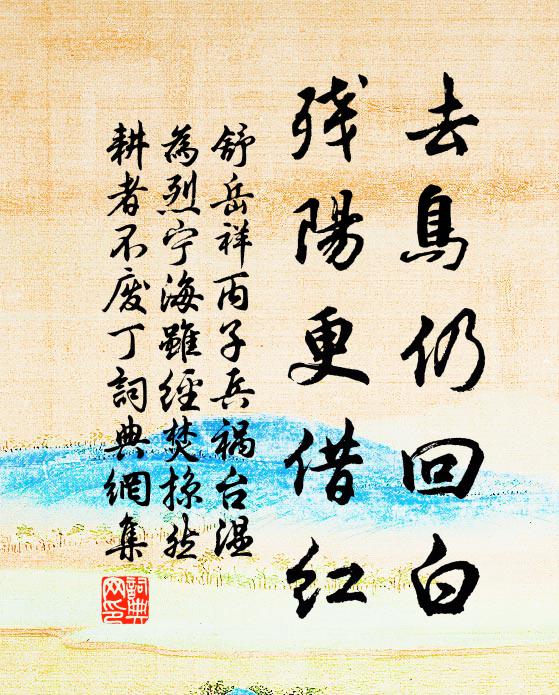 去鳥仍回白
殘陽更借紅
舒岳祥丙子兵禍台溫
為烈宁海雖經焚掠然
耕者不废丁詞典網集
詞典